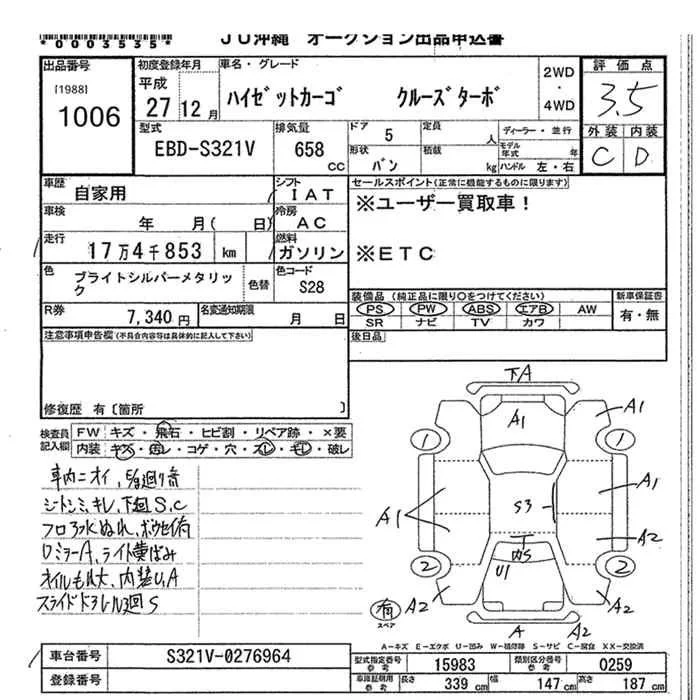 *0003535*
JU沖縄 オークション出品申込書
出品番号
[1988]
1006
初度登録年月
平成
27 12月
車名・グレード
ハイゼットカーゴ クルーズターボ
2WD
・
4WD
評価点
3.5
外装 内装
C D
型式
EBD-S321V
排気量
658
cc
ドア 5
定員 人
形状 バン
積載 kg
ディーラー・並行
モデル年式 年
ハンドル 左・右
車歴
自家用
シフト
IAT
セールスポイント(正常に機能するものに限ります)
※ユーザー買取車!
※ETC
車検
年 月( 日)
冷房
AC
走行
17万4千853 km
燃料
ガソリン
色
ブライトシルバーメタリック
色替
色コード
S28
装備品(純正品に限り○をつけてください)
PS PW ABS エアB AW
SR ナビ TV カワ
新車保証書
有・無
R券
7,340 円
名変通知期限
月 日
後日品
注意事項申告欄(不具合内容等は具体的に記入して下さい)
修復歴 有〔箇所 〕
検査員記入欄
FW キズ・飛石・ヒビ割・リペア跡・×要
内装 キズ・汚レ・コゲ・穴・スレ・キレ・破レ
車内ニオイ,
シートシミ,キレ,下回S,C
フロアヌレ,
ロミラーA,ライト黄ばみ
オイルもれ大,内装U,A
スライドドアレール3回S
下A
A1
A1
1
1
A1
A1
S3
A2
2
2
内S
U1
A2
A2
A
A2
有
スペア
A-キズ E-エクボ U-凹み W-補修跡 S-サビ C-腐食 XX-交換済
車台番号
S321V-0276964
登録番号
型式指定番号
参考
15983
類別区分番号
参考
0259
車庫証明用
参考
長さ 339 cm
幅 147 cm
高さ 187 cm